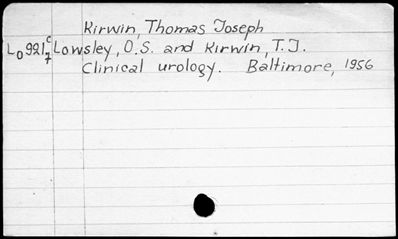 Kirwin, Thomas Joseph
Lo921c7 Lowsley, O.S. and Kirwin, T.J.
Clinical urology. Baltimore, 1956